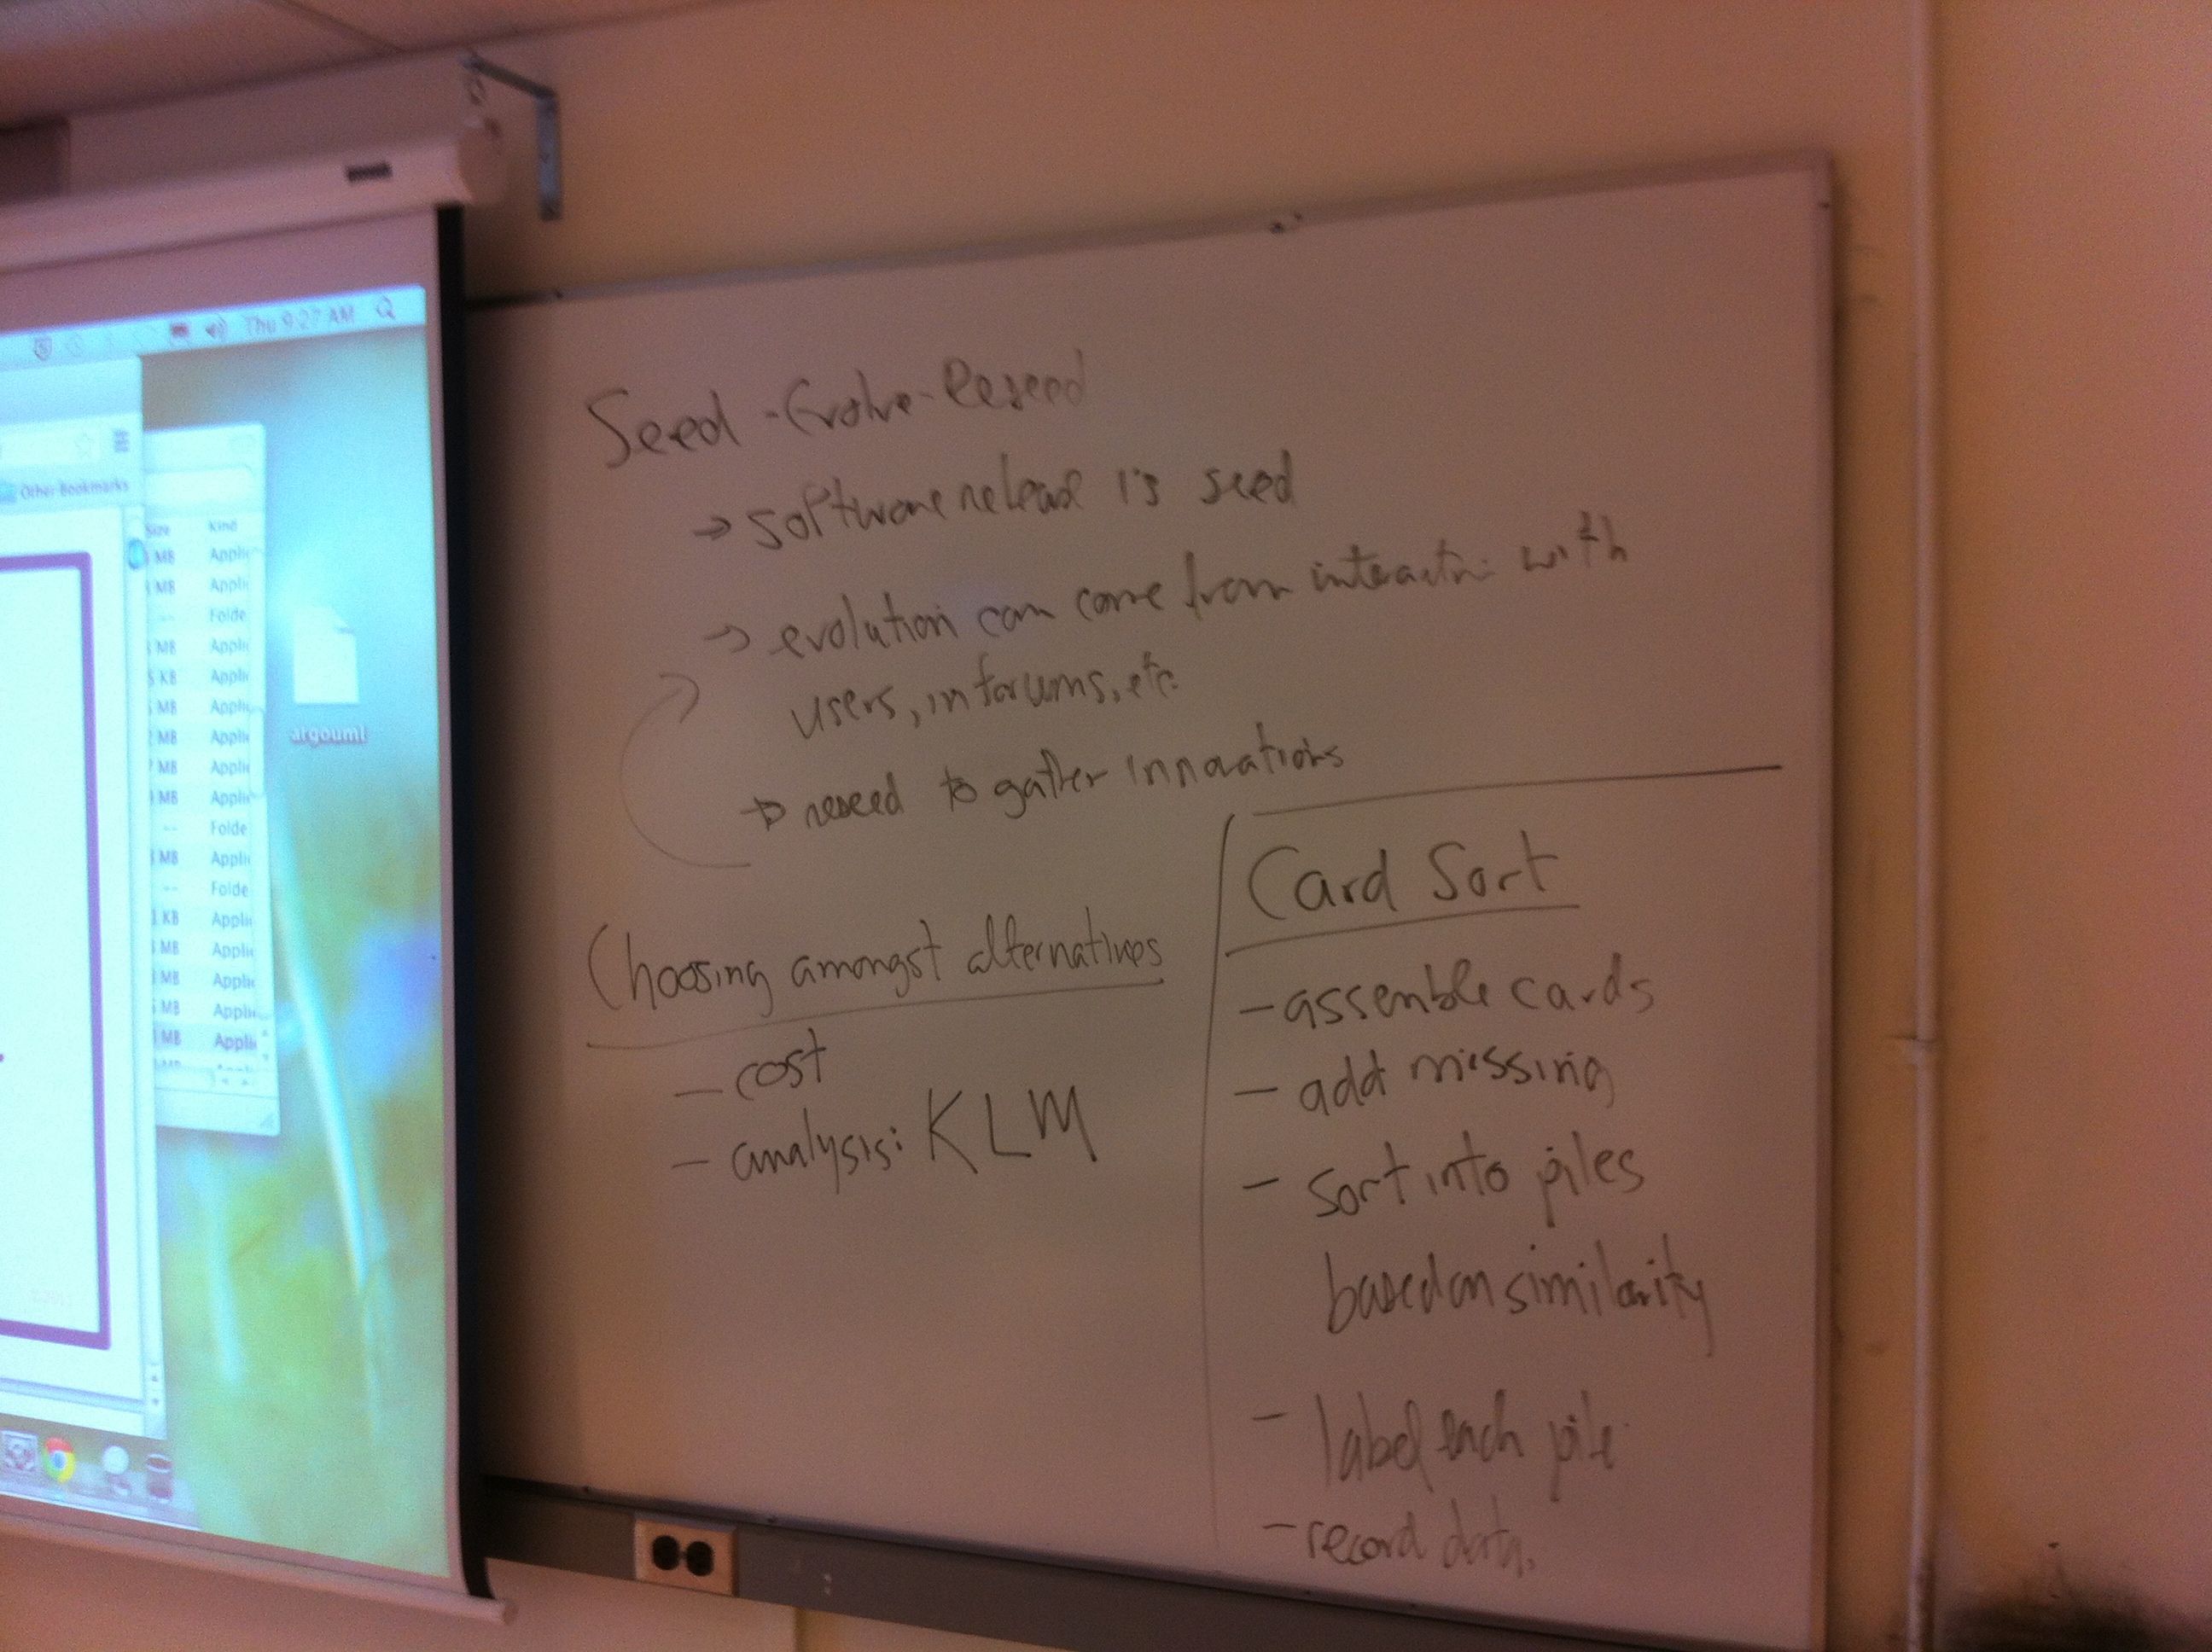 Thu 9:27 AM
Other Bookmarks
Size Kind
MB Appli
MB Appli
-- Folde
MB Appli
KB Appli
MB Appli
MB Appli
MB Appli
MB Appli
-- Folde
MB Appli
-- Folde
KB Appli
MB Appli
MB Appli
MB Appli
MB Appli
argouml
Seed-Evolve-Reseed
→ software release is seed
→ evolution can come from interactn with
users, in forums, etc.
→ reseed to gather innovations
Choosing amongst alternatives
- cost
- analysis: KLM
Card Sort
- assemble cards
- add missing
- sort into piles
based on similarity
- label each pile
- record data.